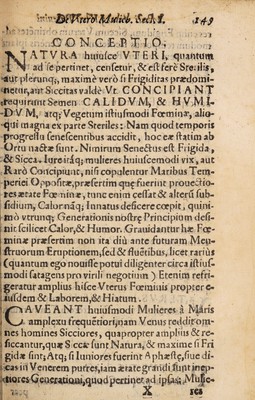 De Vtero Mulieb. Sect. I. 149
CONCEPTIO.
NATVRA huiusce VTERI, quantum
ad se pertinet, censetur, & est ferè Sterilis,
aut plerunq; maximè verò si Frigiditas prædomi-
netur, aut Siccitas valdè. Vt CONCIPIANT
requirunt Semen CALIDVM, & HVMI-
DVM, atq; Vegetum istiusmodi Fœminæ, alio-
qui magna ex parte Steriles: Nam quod temporis
progressu senescentibus accidit, hoc eæ statim ab
Ortu nactæ sunt. Nimirum Senectus est Frigida,
& Sicca. Iure itáq; mulieres huiuscemodi vix, aut
Rarò Concipiunt, nisi copulentur Maribus Tem-
periei Oppositæ, præsertim quæ fuerint prouectio-
res ætate Fœminæ, tunc enim cessat & alterũ sub-
sidium, Calor náq; Iunatus desicere cœpit, quini-
mò vtrunq; Generationis nostræ Principium desi-
nit scilicet Calor, & Humor. Grauidantur hæ Fœ-
minæ præsertim non ita diù ante futuram Men-
struorum Eruptionem, sed & fluẽtibus, licet rariùs
(quantum ego nouisse potui diligenter circa istius-
modi satagens pro virili negotium) Etenim refri-
geratur amplius hisce Vterus Fœminis propter e-
iusdem & Laborem, & Hiatum.
CAVEANT huiusmodi Mulieres à Maris
amplexu frequẽtiori, nam Venus reddit om-
nes homines Sicciores, quapropter amplius & re-
siccantur, quæ Siccæ sunt Natura, & maximè si Fri
gidæ sint; Atq; si Iuniores fuerint Aphæstę, siue di-
cas in Venerem putres, iam ætate grandi sunt inep-
tiores Generationi, quod pertinet ad ipsas; Mulie-
X res